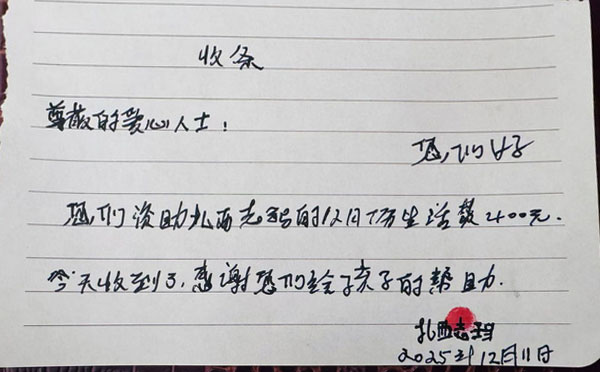 收条
尊敬的爱心人士:
您们好
您们资助扎西志玛的12月份生活费2400元.
今天收到了,感谢您们给孩子的帮助.
扎西志玛
2025年12月11日